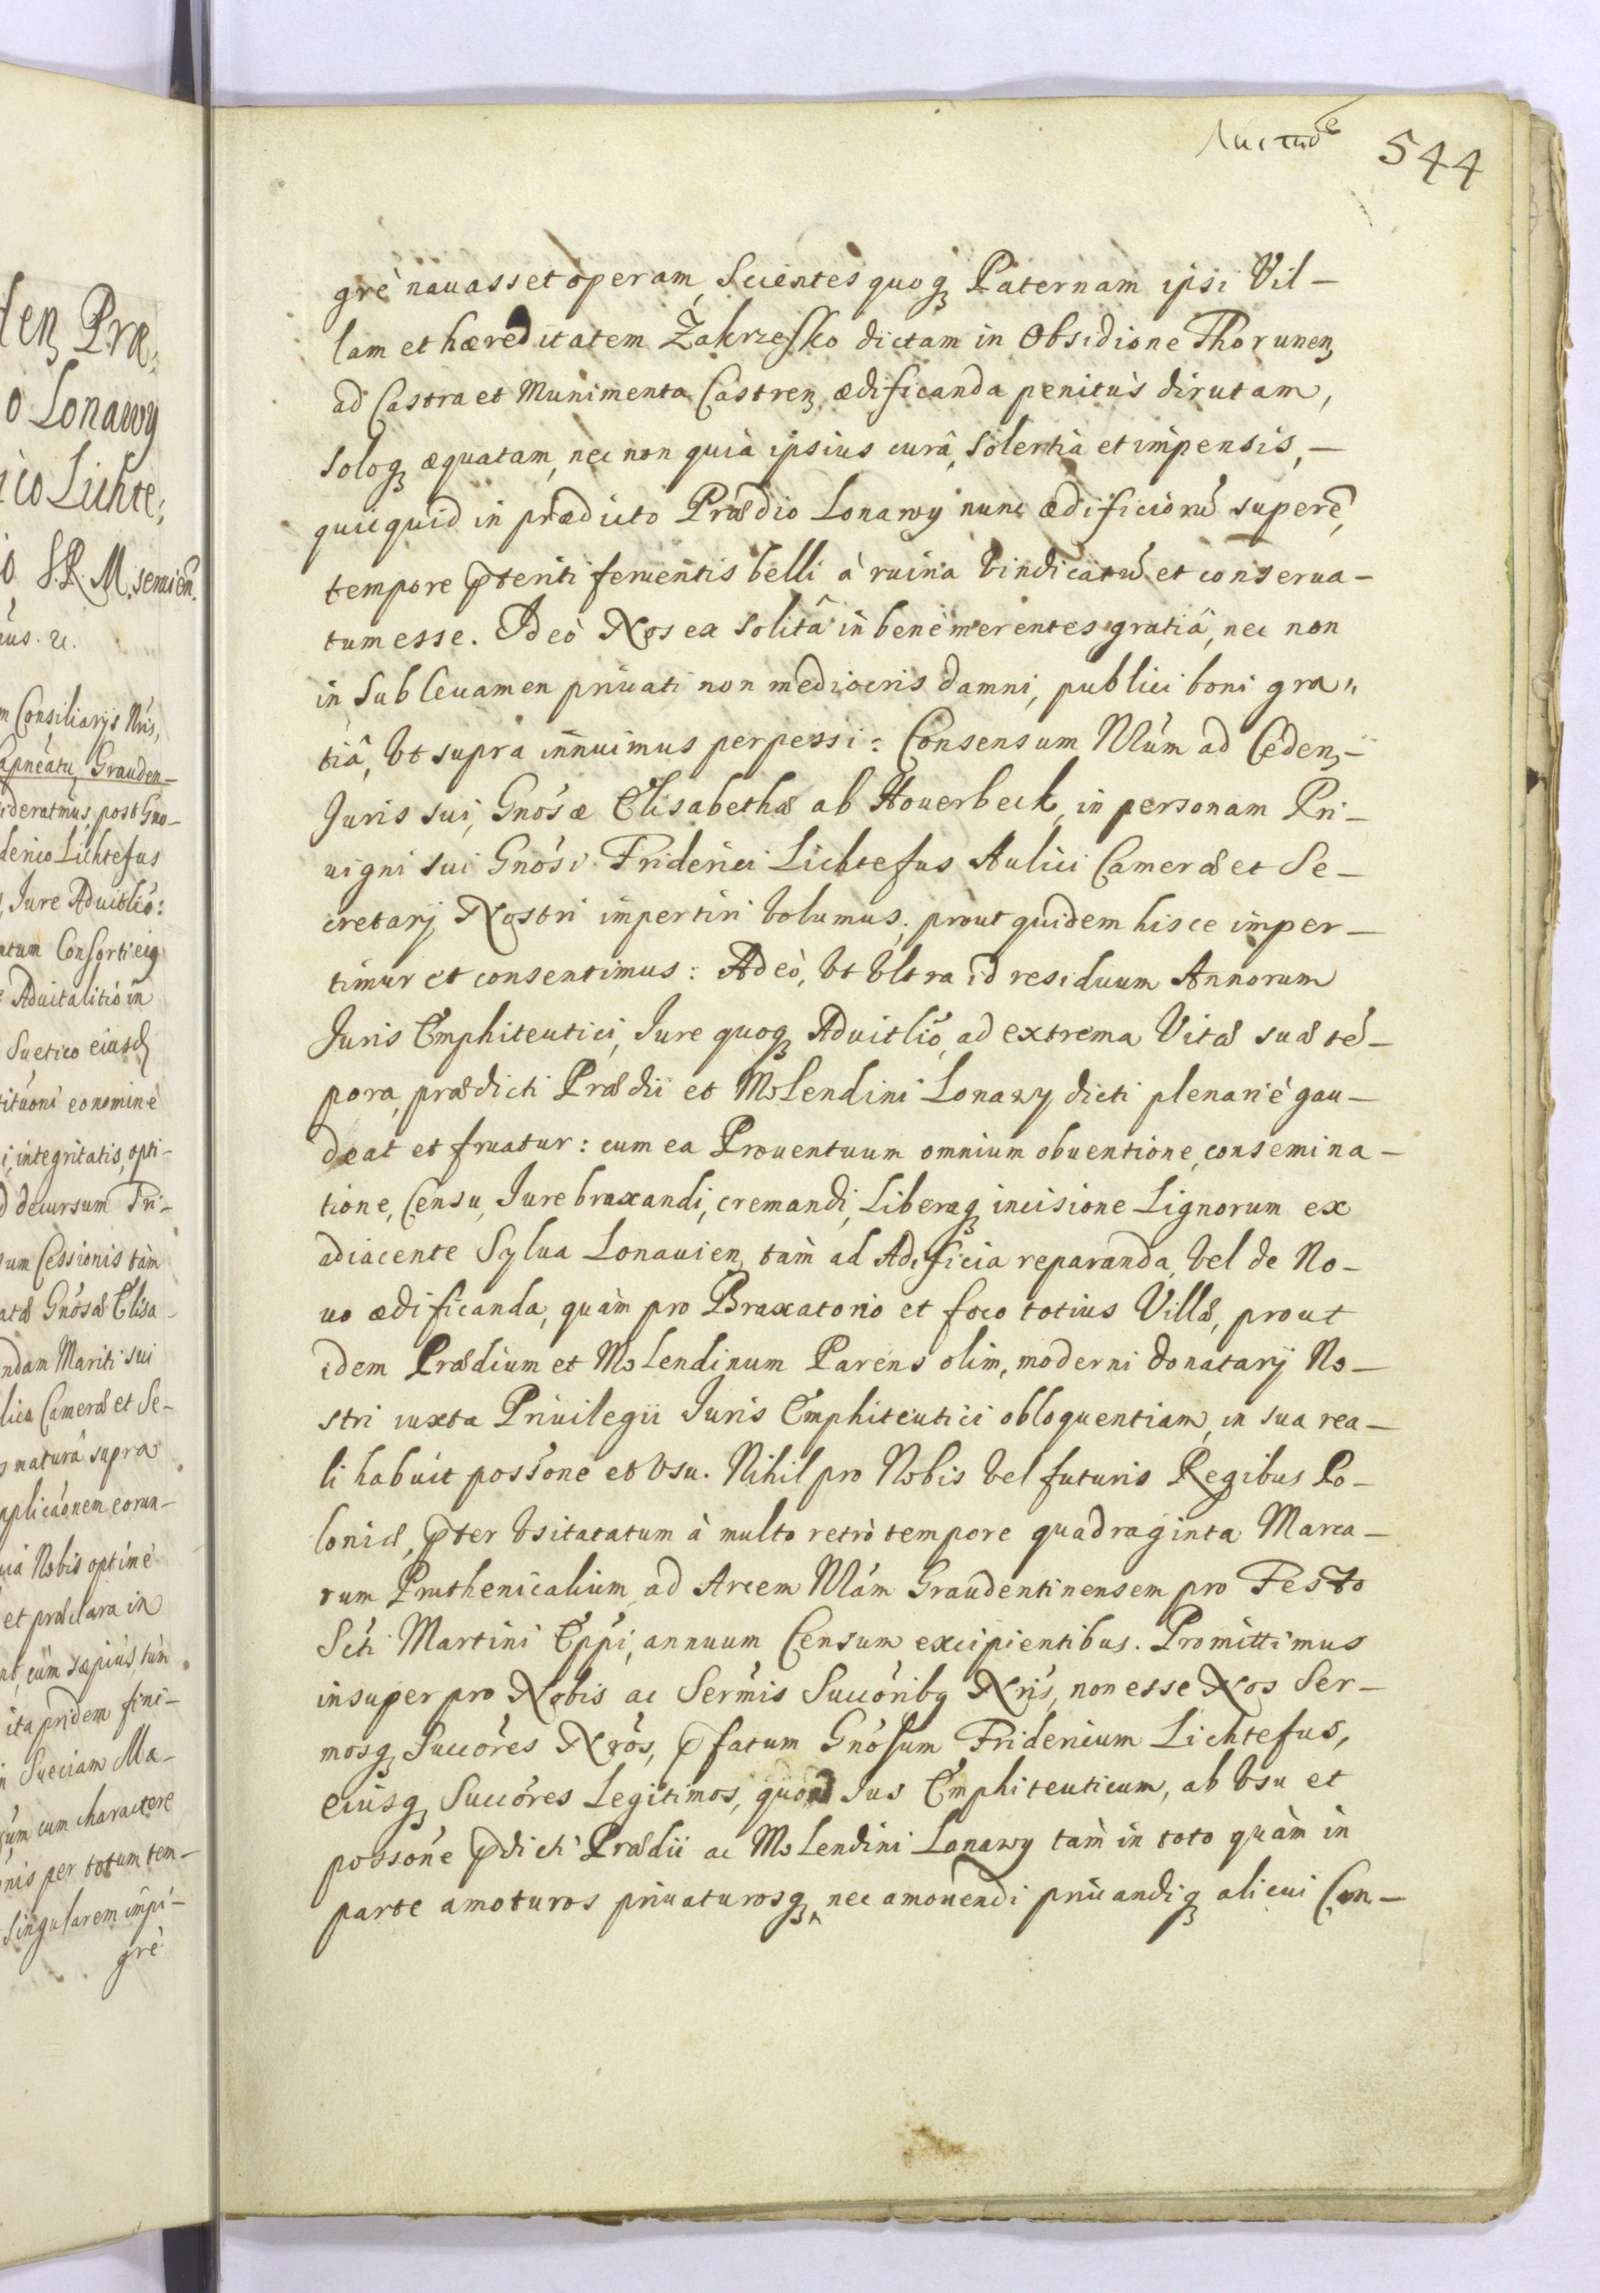 544
grè nauasset operam, Scientes quoq Paternam ipsi Vil-
lam et hæreditatem Zakrzesko dictam in Obsidione Thorunen
ad Castra et Munimenta Castren ædificanda penitùs dirutam,
soloq æquatam, nec non quià ipsius curâ, solertià et impensis, -
quicquid in prædicto Prædio Lonawy nunc ædificiorũ superẽ,
tempore pteriti feruentis belli à ruina vindicatũ et conserua-
tum esse. Ideò Nos ex solitâ in benemerentes gratiâ, nec non
in subleuamen priuati non mediocris damni, publici boni gra-
tiâ, vt supra innuimus perpessi: Consensum Nrum ad Ceden-
Juris sui, Gnosæ Elisabethæ ab Houerbeck, in personam Pri-
uigni sui Gnosi Friderici Lichtefus Aulici Cameræ et Se-
cretarij Nostri impertiri volumus; prout quidem hisce imper-
timur et consentimus: Adeò, vt vltra id residuum Annorum
Juris Emphiteutici, Jure quoq Aduitliõ, ad extrema Vitæ suæ tẽ-
pora, prædicti Prædii et Molendini Lonawy dicti plenariè gau-
deat et fruatur: cum ea Prouentuum omnium obuentione, consemina-
tione, Censu, Jure braxandi, cremandi, Liberaq incisione Lignorum ex
adiacente Sylua Lonauien tàm ad Ædificia reparanda, vel de No-
uo ædificanda, quàm pro Braxatorio et foco totius Villæ, prout
idem Prædium et Molendinum Parens olim, moderni donatarij No-
stri iuxta Priuilegii Juris Emphiteutici obloquentiam, in sua rea-
li habuit possone et vsu. Nihil pro Nobis vel futuris Regibus Po-
loniæ, pter vsitatatum à multo retrò tempore quadraginta Marca-
rum Pruthenicalium, ad Arcem Nram Graudentinensem pro Festo
Scti Martini Eppi, annuum Censum excipientibus. Promittimus
insuper pro Nobis ac Sermis Succoribq Nris, non esse Nos Ser-
mosq Succores Nros, pfatum Gnosum Fridericum Lichtefus,
eiusq Succores Legitimos, quoad Jus Emphiteuticum, ab vsu et
possone pdicti Prædii ac Molendini Lonawy tàm in toto quàm in
parte amoturos priuaturosq, nec amouendi priuandiq alicui Con-
o Lonawy
ico Lichte;
S.R.M.
m Consiliarijs Nris,
Grauden-
post Gno-
derico Lichtefus
Jure Aduitliõ:
Consorti eiq
Aduitalitiò in
Suetico eiusd
eo nomine
integritatis, opti-
decursum Fri-
Cessionis tàm
Gnosæ Elisa-
Mariti sui
Cameræ et Se-
supra
eorun-
Nobis optimè
et præclara in
cùm sæpiùs, tùm
ita pridem fini-
Sueciam Ma-
cum charactere
per totum tem-
singularem impi-
grè